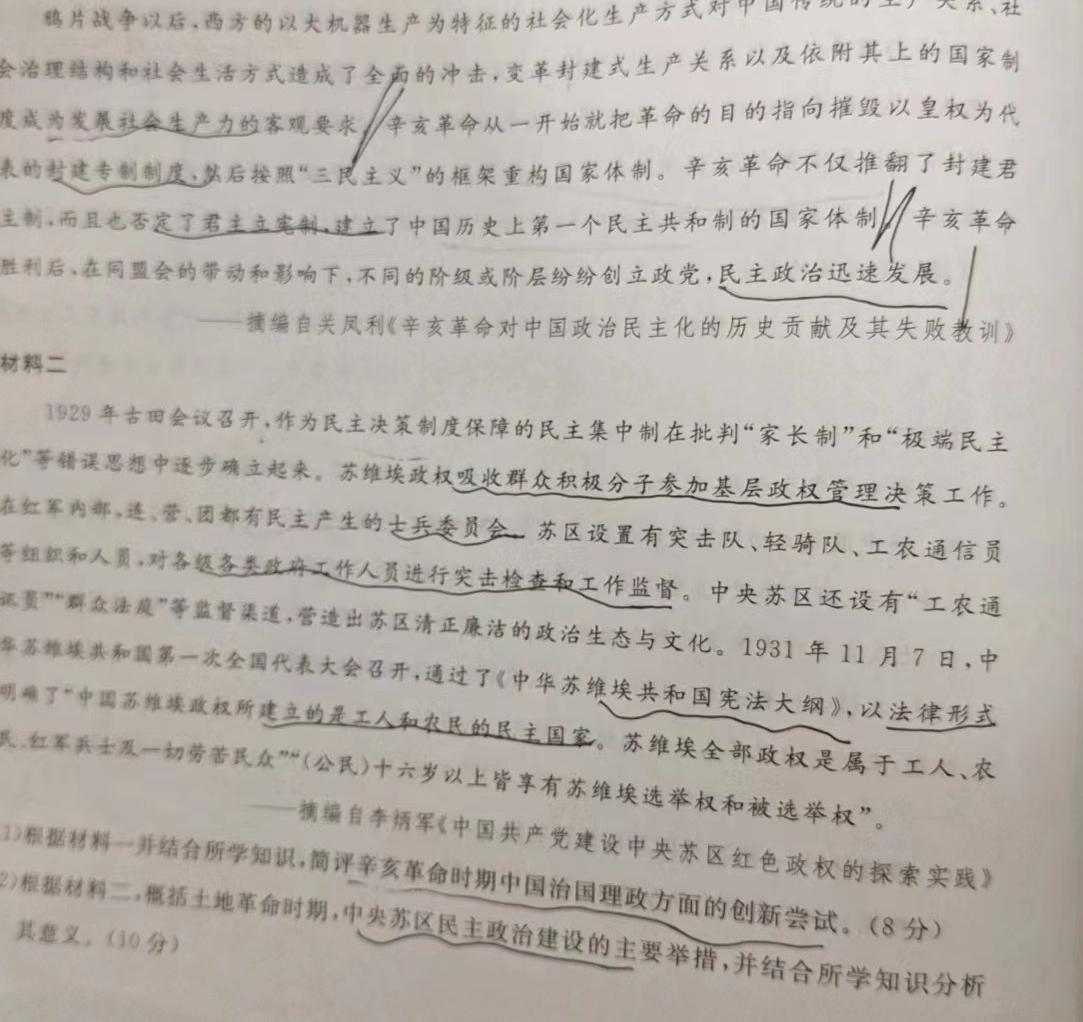 鸦片战争以后,西方的以大机器生产为特征的社会化生产方式对中国传统的生产关系、社
会治理结构和社会生活方式造成了全面的冲击,变革封建式生产关系以及依附其上的国家制
度成为发展社会生产力的客观要求。辛亥革命从一开始就把革命的目的指向摧毁以皇权为代
表的封建专制制度,然后按照“三民主义”的框架重构国家体制。辛亥革命不仅推翻了封建君
主制,而且也否定了君主立宪制,建立了中国历史上第一个民主共和制的国家体制。辛亥革命
胜利后,在同盟会的带动和影响下,不同的阶级或阶层纷纷创立政党,民主政治迅速发展。
——摘编自关凤利《辛亥革命对中国政治民主化的历史贡献及其失败教训》
材料二
1929年古田会议召开,作为民主决策制度保障的民主集中制在批判“家长制”和“极端民主
化”等错误思想中逐步确立起来。苏维埃政权吸收群众积极分子参加基层政权管理决策工作。
在红军内部,连、营、团都有民主产生的士兵委员会。苏区设置有突击队、轻骑队、工农通信员
等组织和人员,对各级各类政府工作人员进行突击检查和工作监督。中央苏区还设有“工农通
讯员”“群众法庭”等监督渠道,营造出苏区清正廉洁的政治生态与文化。1931年11月7日,中
华苏维埃共和国第一次全国代表大会召开,通过了《中华苏维埃共和国宪法大纲》,以法律形式
明确了“中国苏维埃政权所建立的是工人和农民的民主国家。苏维埃全部政权是属于工人、农
民、红军兵士及一切劳苦民众”“(公民)十六岁以上皆享有苏维埃选举权和被选举权”。
——摘编自李炳军《中国共产党建设中央苏区红色政权的探索实践》
1)根据材料一并结合所学知识,简评辛亥革命时期中国治国理政方面的创新尝试。(8分)
2)根据材料二,概括土地革命时期,中央苏区民主政治建设的主要举措,并结合所学知识分析
其意义。(10分)